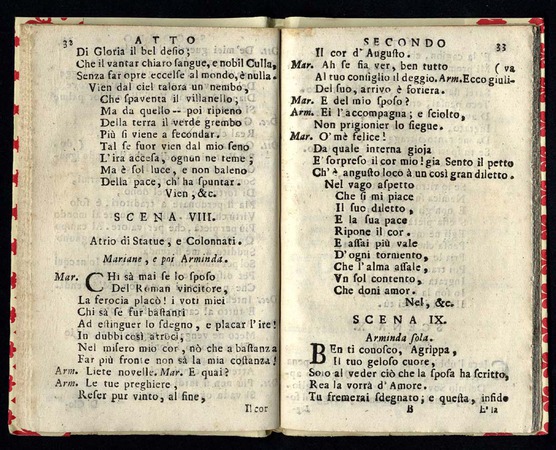 32 ATTO
Di Gloria il bel desio;
Che il vantar chiaro sangue, e nobil Culla,
Senza far opre eccelse al mondo, è nulla.
Vien dal ciel talora un nembo,
Che spaventa il villanello;
Ma da quello -- poi ripieno
Della terra il verde grembo
Più si viene a fecondar.
Tal se fuor vien dal mio seno
L'ira accesa, ognun ne teme;
Ma è sol luce, e non baleno
Della pace, ch' ha spuntar.
Vien, &c.
SCENA VIII.
Atrio di Statue, e Colonnati.
Mariane, e poi Arminda.
Mar. CHi sà mai se lo sposo
Del Roman vincitore,
La ferocia placò! i voti miei
Chi sà se fur bastanti
Ad estinguer lo sdegno, e placar l'ire!
In dubbi così atroci,
Nel misero mio cor, nò che a bastanza
Far più fronte non sà la mia costanza!
Arm. Liete novelle. Mar. E quai?
Arm. Le tue preghiere,
Reser pur vinto, al fine,
Il cor
SECONDO 33
Il cor d' Augusto.
Mar. Ah se fia ver, ben tutto (va
Al tuo consiglio il deggio. Arm. Ecco giuli-
Del suo, arrivo è foriera.
Mar. E del mio sposo?
Arm. Ei l'accompagna; e sciolto,
Non prigionier lo siegue.
Mar. O' me felice!
Da quale interna gioja
E' sorpreso il cor mio! già Sento il petto
Ch' è angusto loco à un così gran diletto.
Nel vago aspetto
Che sì mi piace
Il suo diletto,
E la sua pace
Ripone il cor.
E assai più vale
D' ogni tormento,
Che l'alma assale,
Vn sol contento,
Che doni amor.
Nel, &c.
SCENA IX.
Arminda sola.
BEn ti conosco, Agrippa,
Il tuo geloso cuore,
Solo al veder ciò che la sposa ha scritto,
Rea la vorrà d' Amore.
Tu fremerai sdegnato; e questa, infido
B E' la